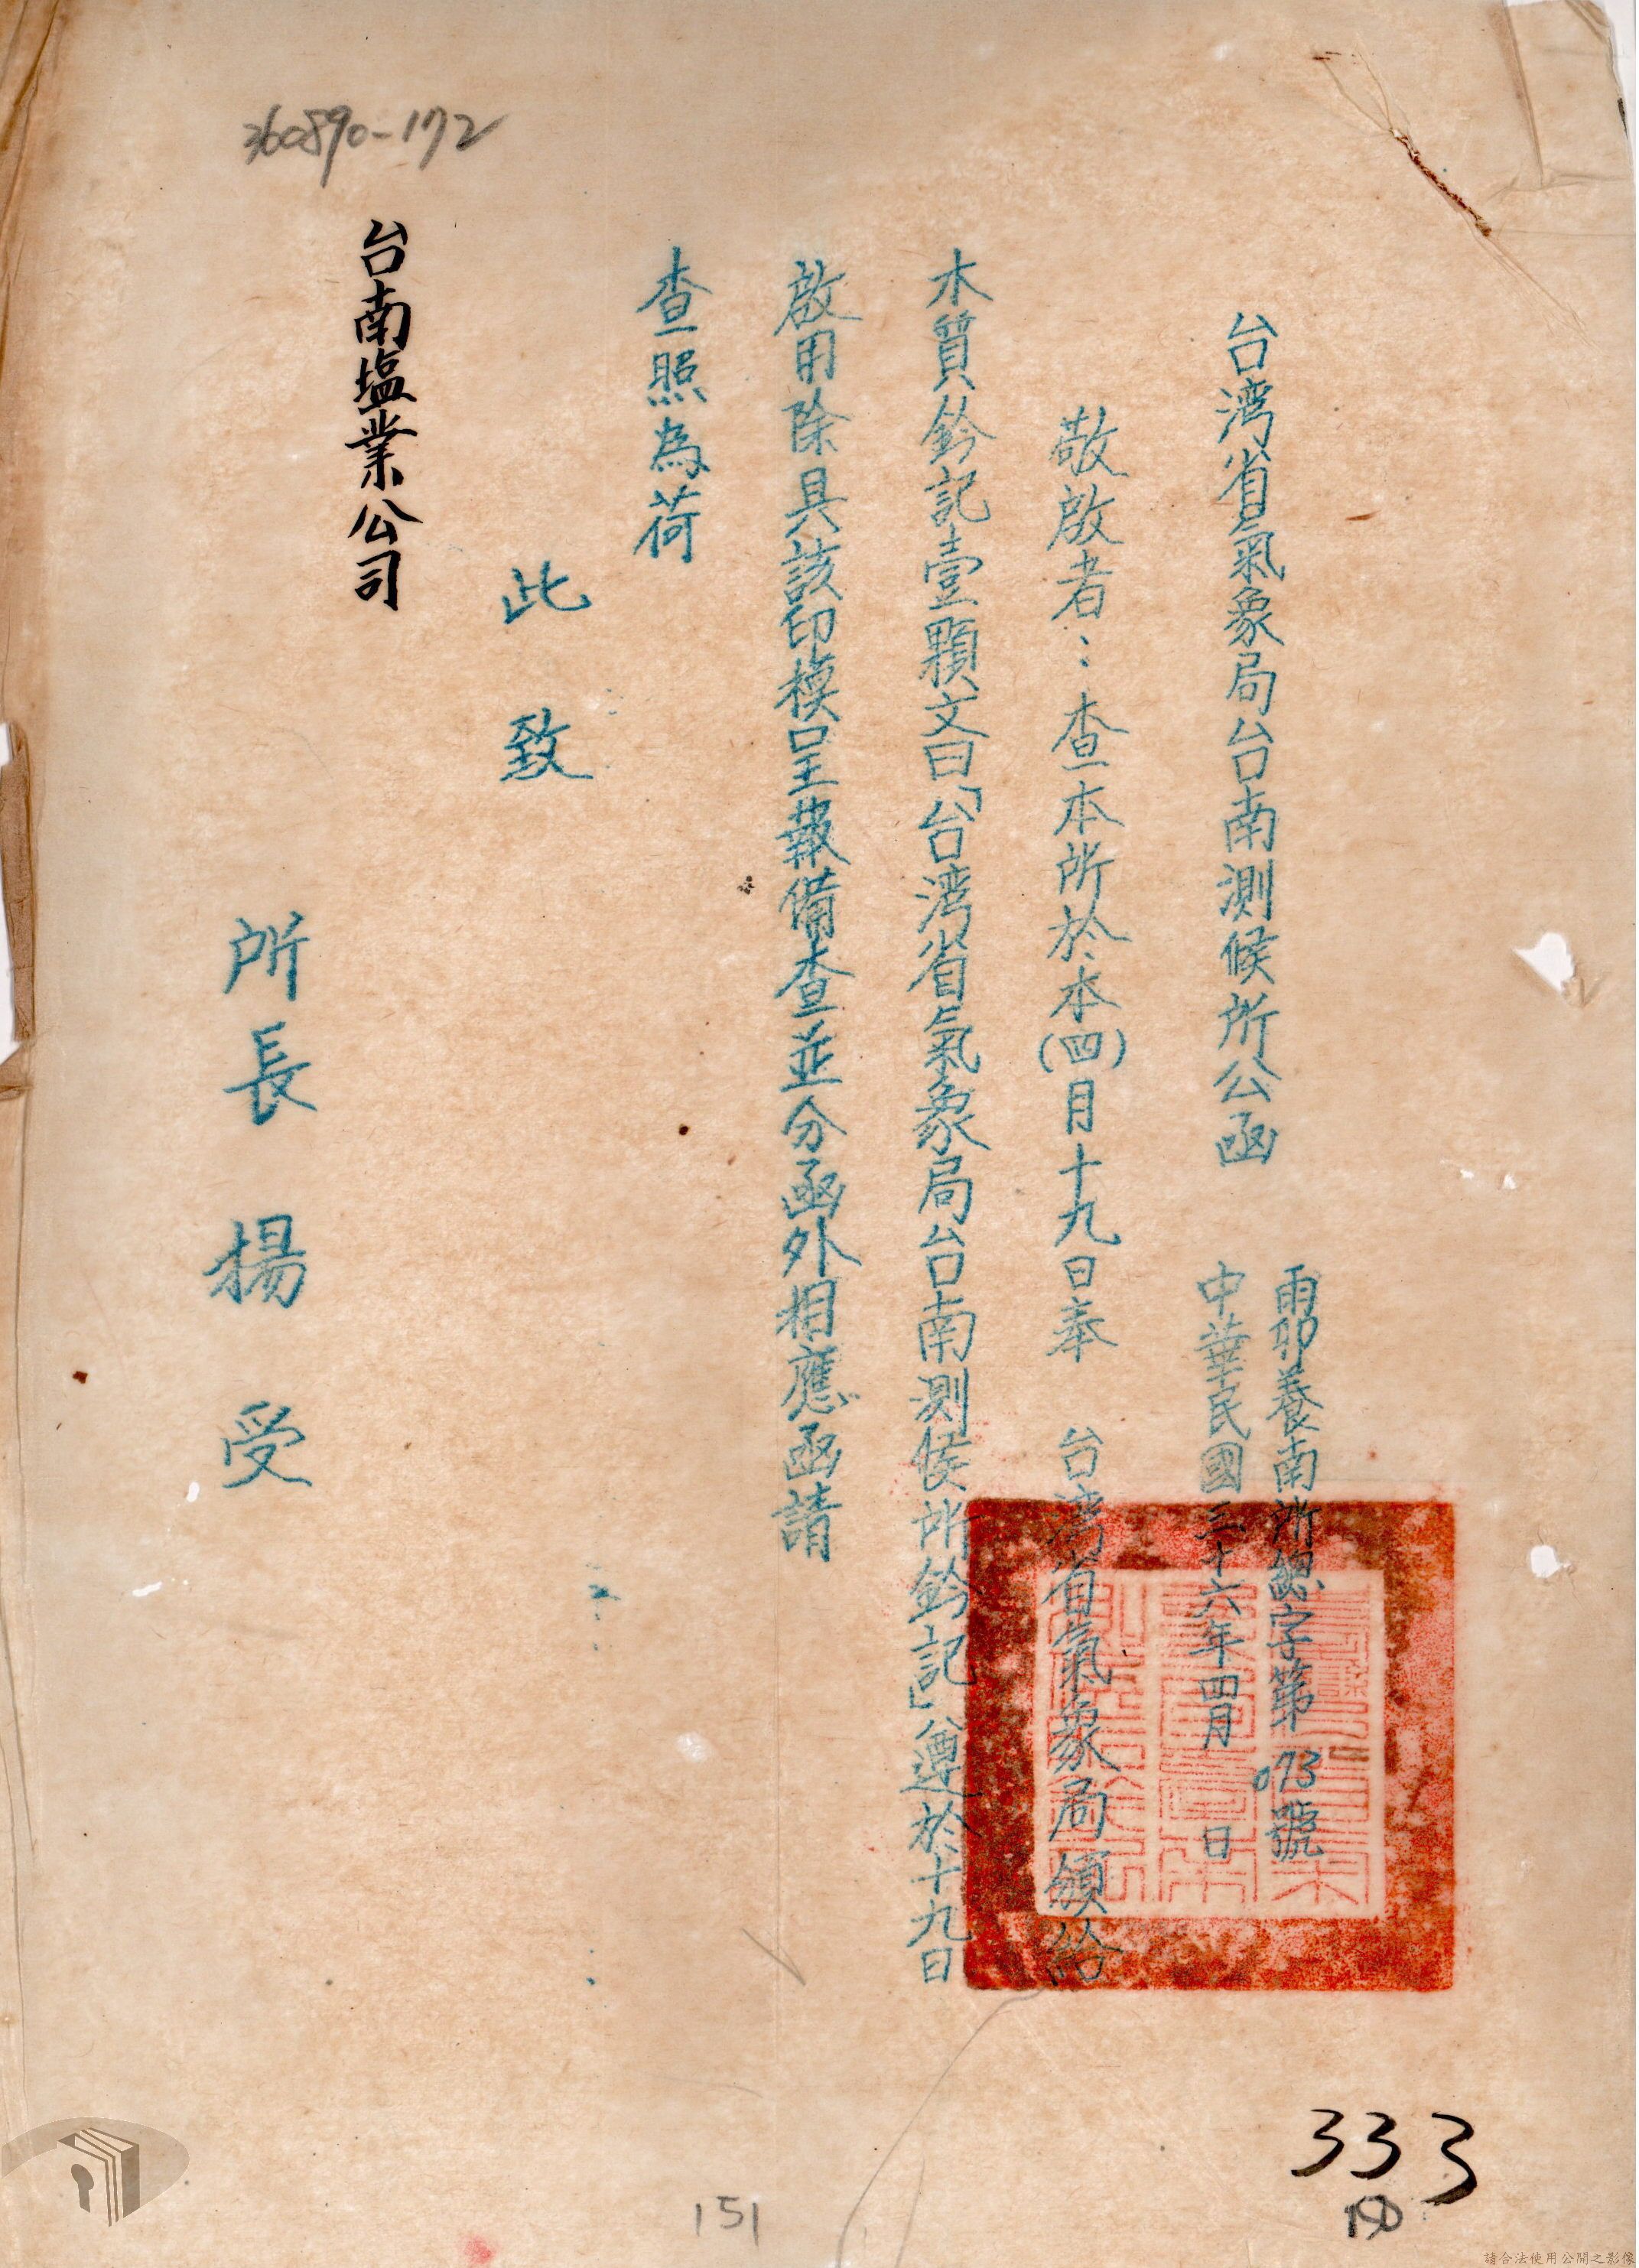 台湾省氣象局台南測候所公函
雨卯養南所總字第073號
中華民國三十六年四月 日
敬啟者：查本所於本(四)月十九日奉 台湾省氣象局頒給
木質鈐記壹顆文曰「台湾省氣象局台南測候所鈐記」遵於十九日
啟用除具該印模呈報備查並分函外相應函請
查照為荷
此致
台南塩業公司
所長 楊 受
360890-172
333
151
請合法使用公開之影像